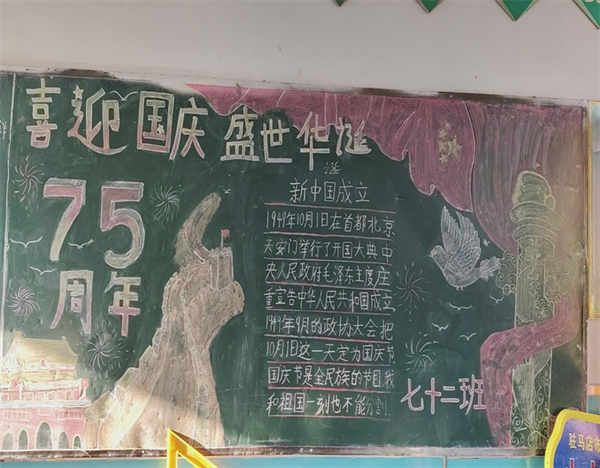 喜迎国庆 盛世华诞
诞
75
周年
新中国成立
1949年10月1日在首都北京
天安门举行了开国大典中
央人民政府毛泽东主度庄
重宣告中华人民共和国成立
1949年9月的政协大会把
10月1日这一天定为国庆节
国庆节是全民族的节日我
和祖国一刻也不能分割
七十二班
驻马店市